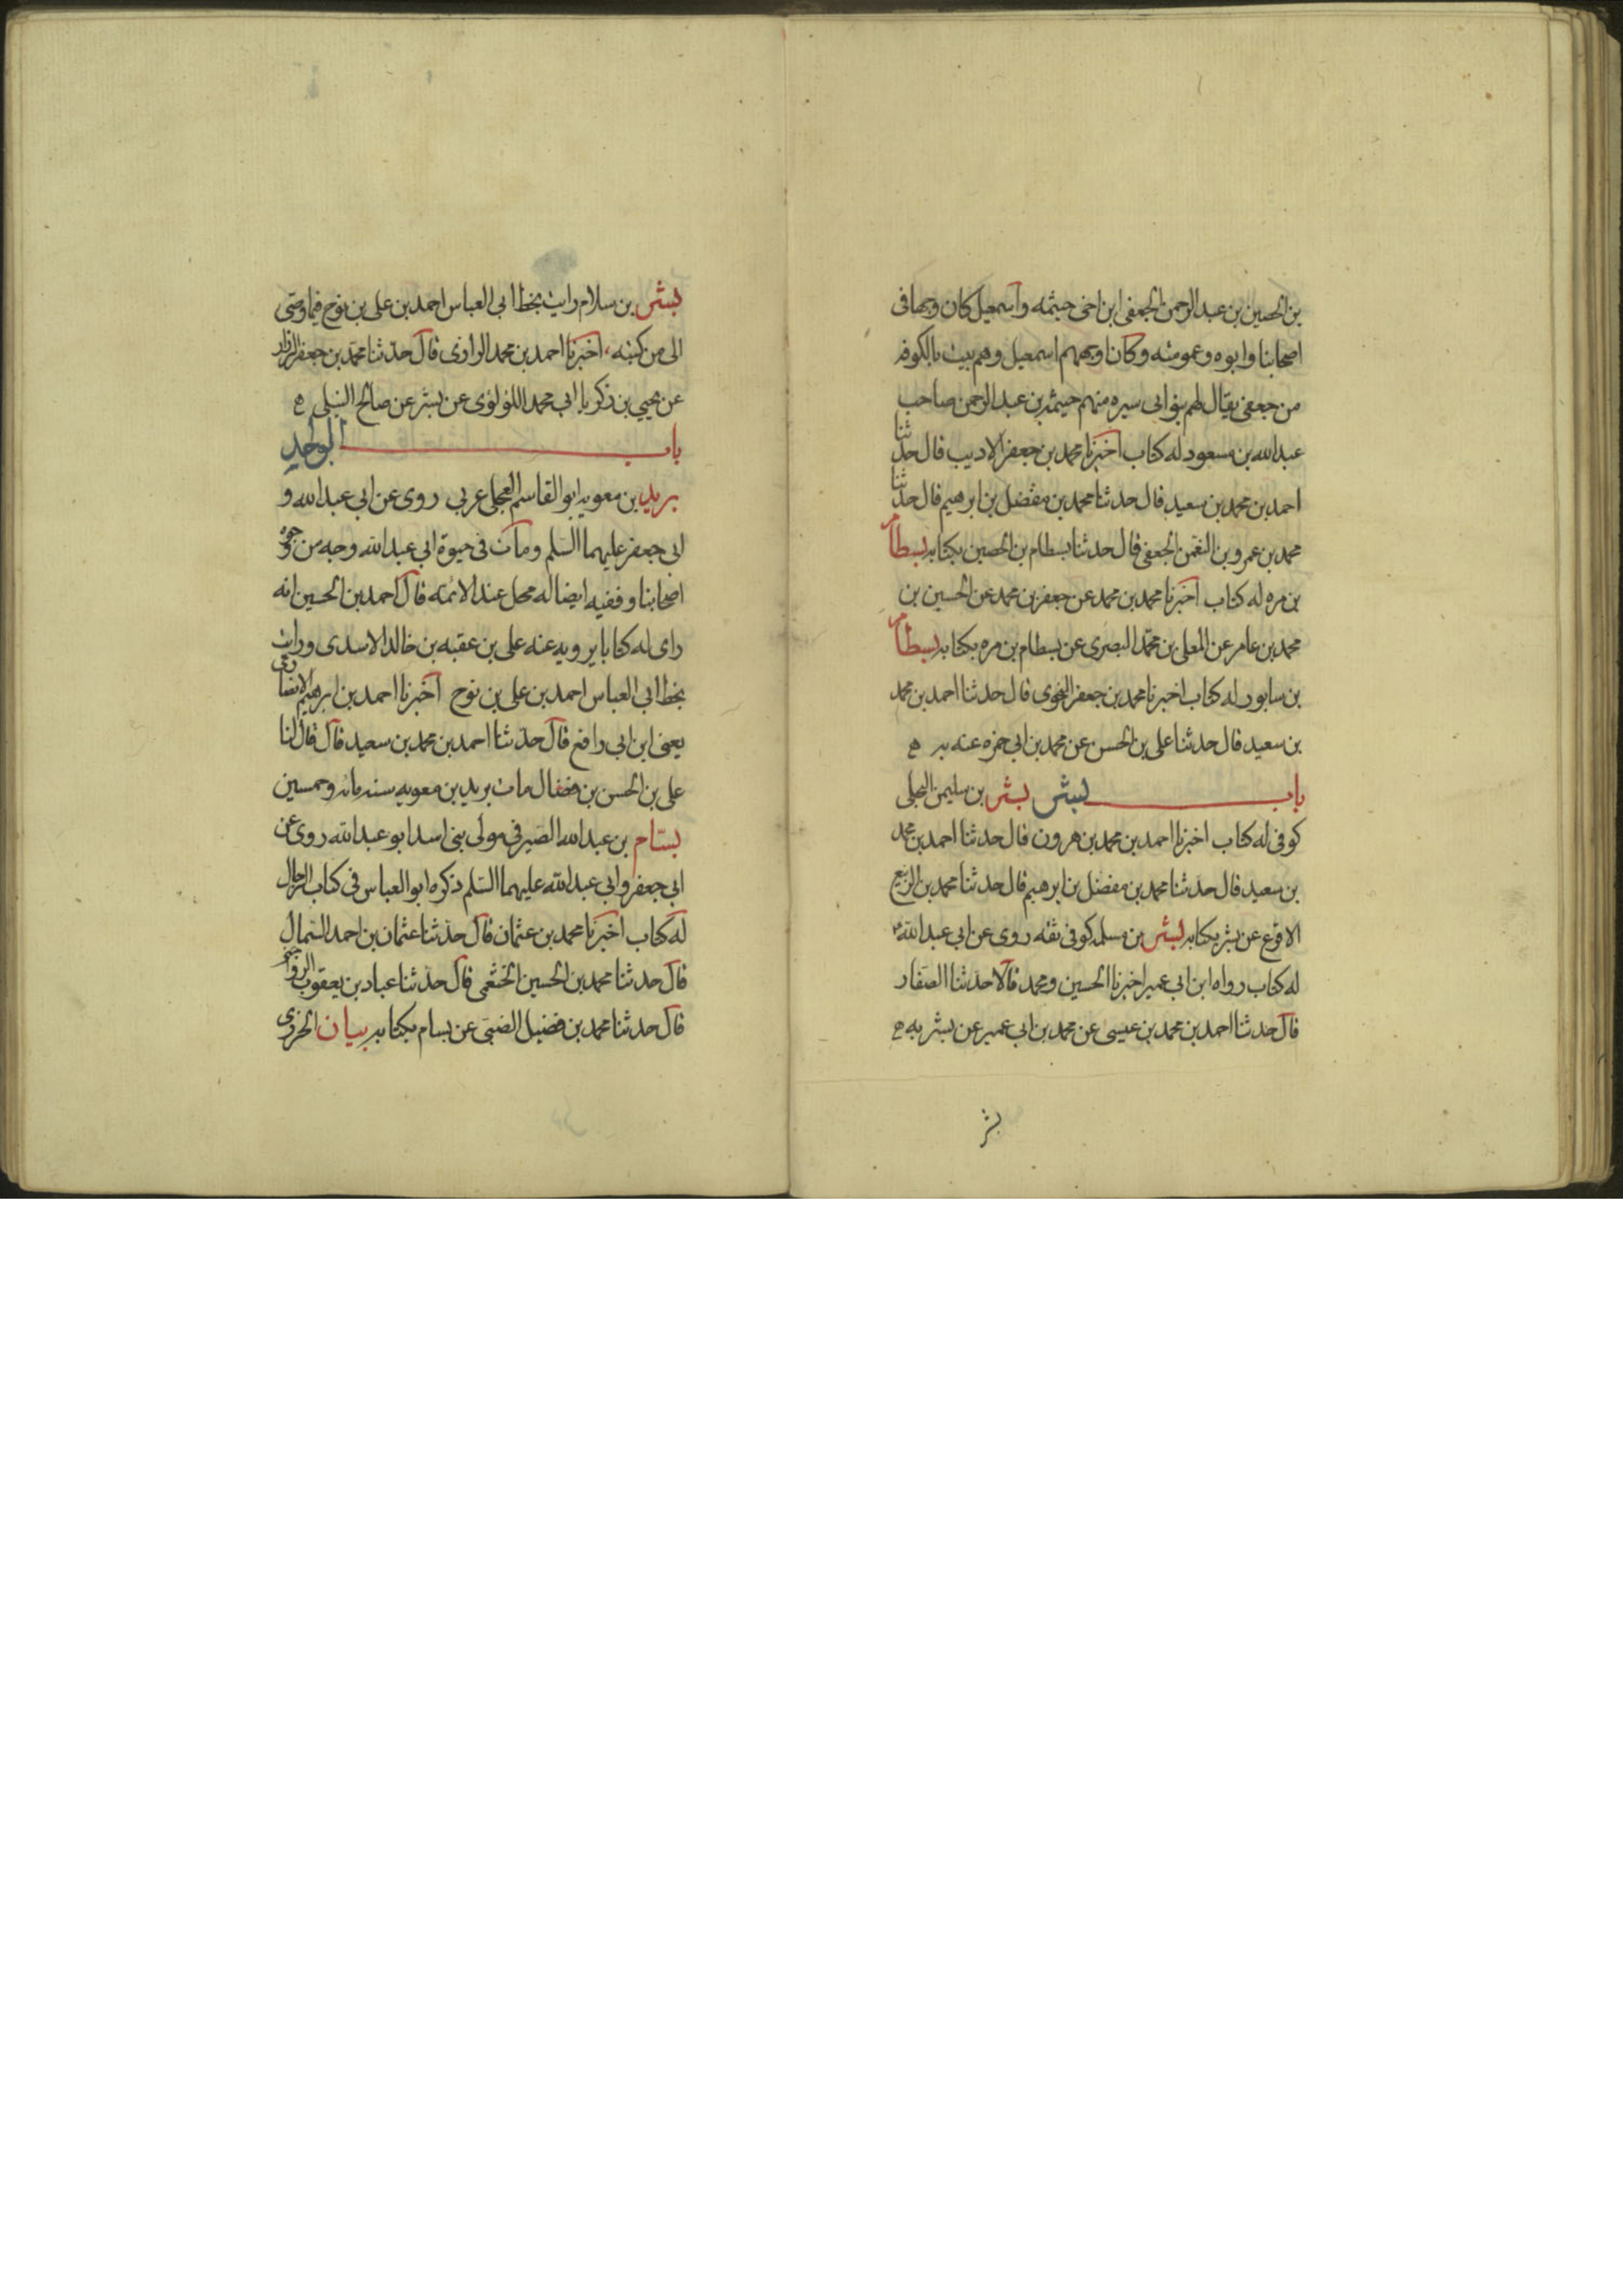 بن الحصين بن عبد الرحمن الجعفى ابن اخى خيثمه واسمعيل كان وجها فى
اصحابنا وابوه وعمومته وكان اوجههم اسمعيل وهم بيت بالكوفه
من جعفى يقال لهم بنو ابى سبره منهم خيثمه بن عبد الرحمن صاحب
عبد الله بن مسعود له كتاب اخبرنا محمد بن جعفر الاديب قال حدثنا
احمد بن محمد بن سعيد قال حدثنا محمد بن مفضل بن ابرهيم قال حدثنا
محمد بن عمرو بن النعمن الجعفى قال حدثنا بسطام بن الحصين بكتابه بسطام
بن مره له كتاب اخبرنا محمد بن محمد عن جعفر بن محمد عن الحسين بن
محمد بن عامر عن المعلى بن محمد البصرى عن بسطام بن مره بكتابه بسطام
بن سابور له كتاب اخبرنا محمد بن جعفر النحوى قال حدثنا احمد بن محمد
بن سعيد قال حدثنا على بن الحسن عن محمد بن ابى حمزه عنه به
باب بشر بشر بن سليمن البجلى
كوفى له كتاب اخبرنا احمد بن محمد بن هرون قال حدثنا احمد بن محمد
بن سعيد قال حدثنا محمد بن مفضل بن ابرهيم قال حدثنا محمد بن الربيع
الاقرع عن بشر بكتابه بشر بن مسلمه كوفى ثقه روى عن ابى عبد الله
له كتاب رواه ابن ابى عمير اخبرنا الحسين ومحمد قالا حدثنا الصفار
قال حدثنا احمد بن محمد بن عيسى عن محمد بن ابى عمير عن بشر به
بشر
بشر بن سلام رايت بخط ابى العباس احمد بن على بن نوح فيما وصى
الى من كتبه اخبرنا احمد بن محمد الرازى قال حدثنا محمد بن جعفر الرزاز
عن يحيى بن زكريا ابى محمد اللولوى عن بشر عن صالح النيلى
باب الواحد
بريد بن معويه ابو القاسم العجلى عربى روى عن ابى عبد الله و
ابى جعفر عليهما السلم ومات فى حيوة ابى عبد الله وجه من وجوه
اصحابنا وفقيه ايضا له محل عند الائمه قال احمد بن الحسين انه
راى له كتابا يرويه عنه على بن عقبه بن خالد الاسدى ورايت
بخط ابى العباس احمد بن على بن نوح اخبرنا احمد بن ابرهيم الانصارى
يعنى ابن ابى رافع قال حدثنا احمد بن محمد بن سعيد قال قال لنا
على بن الحسن بن فضال مات بريد بن معويه سنه مائه وخمسين
بسام بن عبد الله الصيرفى مولى بنى اسد ابو عبد الله روى عن
ابى جعفر وابى عبد الله عليهما السلم ذكره ابو العباس فى كتاب الرجال
له كتاب اخبرنا محمد بن عثمان قال حدثنا عثمان بن احمد السمال
قال حدثنا محمد بن الحسين الخثعمى قال حدثنا عباد بن يعقوب الرواجنى
قال حدثنا محمد بن فضيل الضبى عن بسام بكتابه بيان الجزرى